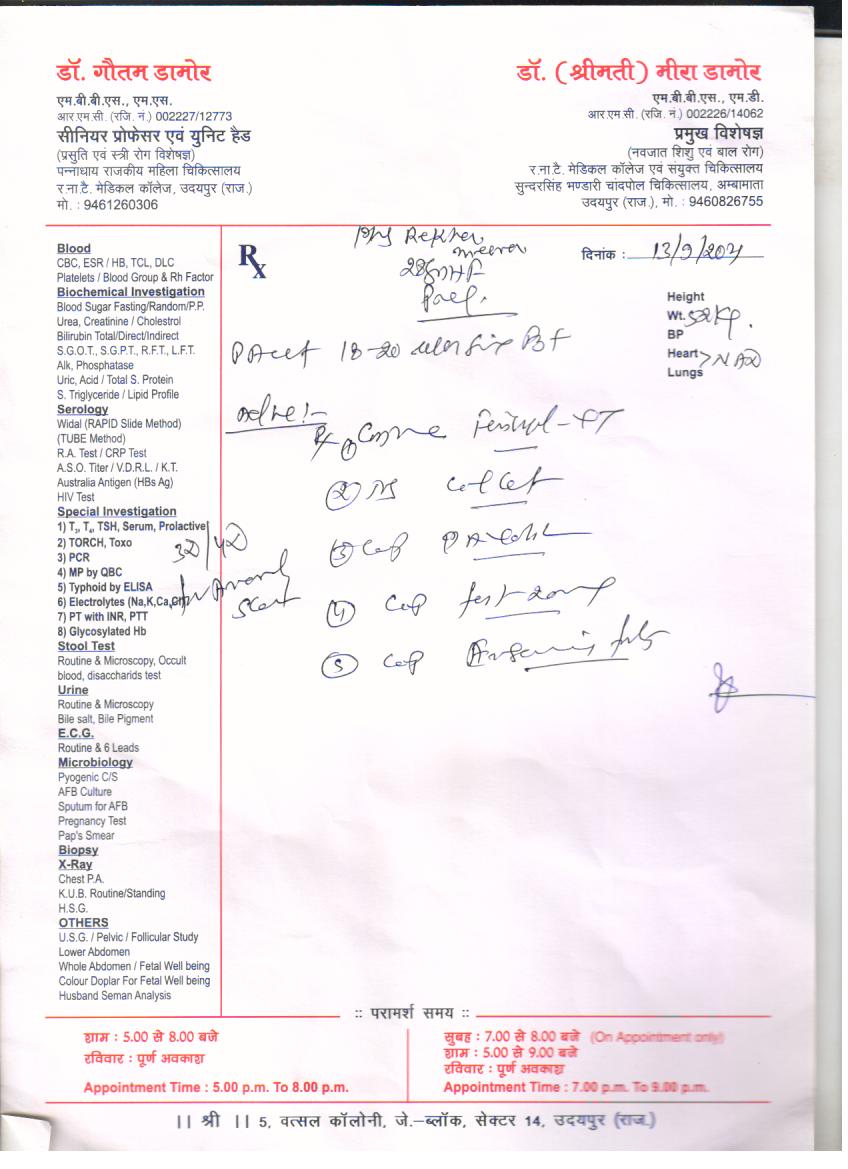 डॉ. गौतम डामोर
एम.बी.बी.एस., एम.एस.
आर.एम.सी. (रजि. नं.) 002227/12773
सीनियर प्रोफेसर एवं युनिट हैड
(प्रसुति एवं स्त्री रोग विशेषज्ञ)
पन्नाधाय राजकीय महिला चिकित्सालय
र.ना.टै. मेडिकल कॉलेज, उदयपुर (राज.)
मो. : 9461260306
डॉ. (श्रीमती) मीरा डामोर
एम.बी.बी.एस., एम.डी.
आर.एम.सी. (रजि. नं.) 002226/14062
प्रमुख विशेषज्ञ
(नवजात शिशु एवं बाल रोग)
र.ना.टै. मेडिकल कॉलेज एवं संयुक्त चिकित्सालय
सुन्दरसिंह भण्डारी चांदपोल चिकित्सालय, अम्बामाता
उदयपुर (राज.), मो. : 9460826755
Blood
CBC, ESR / HB, TCL, DLC
Platelets / Blood Group & Rh Factor
Biochemical Investigation
Blood Sugar Fasting/Random/P.P.
Urea, Creatinine / Cholestrol
Bilirubin Total/Direct/Indirect
S.G.O.T., S.G.P.T., R.F.T., L.F.T.
Alk, Phosphatase
Uric, Acid / Total S. Protein
S. Triglyceride / Lipid Profile
Serology
Widal (RAPID Slide Method)
(TUBE Method)
R.A. Test / CRP Test
A.S.O. Titer / V.D.R.L. / K.T.
Australia Antigen (HBs Ag)
HIV Test
Special Investigation
1) T3, T4, TSH, Serum, Prolactive
2) TORCH, Toxo
3) PCR
4) MP by QBC
5) Typhoid by ELISA
6) Electrolytes (Na,K,Ca,Cl)
7) PT with INR, PTT
8) Glycosylated Hb
Stool Test
Routine & Microscopy, Occult
blood, disaccharids test
Urine
Routine & Microscopy
Bile salt, Bile Pigment
E.C.G.
Routine & 6 Leads
Microbiology
Pyogenic C/S
AFB Culture
Sputum for AFB
Pregnancy Test
Pap's Smear
Biopsy
X-Ray
Chest P.A.
K.U.B. Routine/Standing
H.S.G.
OTHERS
U.S.G. / Pelvic / Follicular Study
Lower Abdomen
Whole Abdomen / Fetal Well being
Colour Doplar For Fetal Well being
Husband Seman Analysis
3D/4D
Rx
Rekha
दिनांक : 13/9/2021
Height
Wt. 52Kg.
BP
Heart > NAD
Lungs
18-20
①
②
③ Cap
④ Cap
⑤ Cap
:: परामर्श समय ::
शाम : 5.00 से 8.00 बजे
रविवार : पूर्ण अवकाश
Appointment Time : 5.00 p.m. To 8.00 p.m.
सुबह : 7.00 से 8.00 बजे (On Appointment only)
शाम : 5.00 से 9.00 बजे
रविवार : पूर्ण अवकाश
Appointment Time : 7.00 p.m. To 9.00 p.m.
|| श्री || 5, वत्सल कॉलोनी, जे.–ब्लॉक, सेक्टर 14, उदयपुर (राज.)